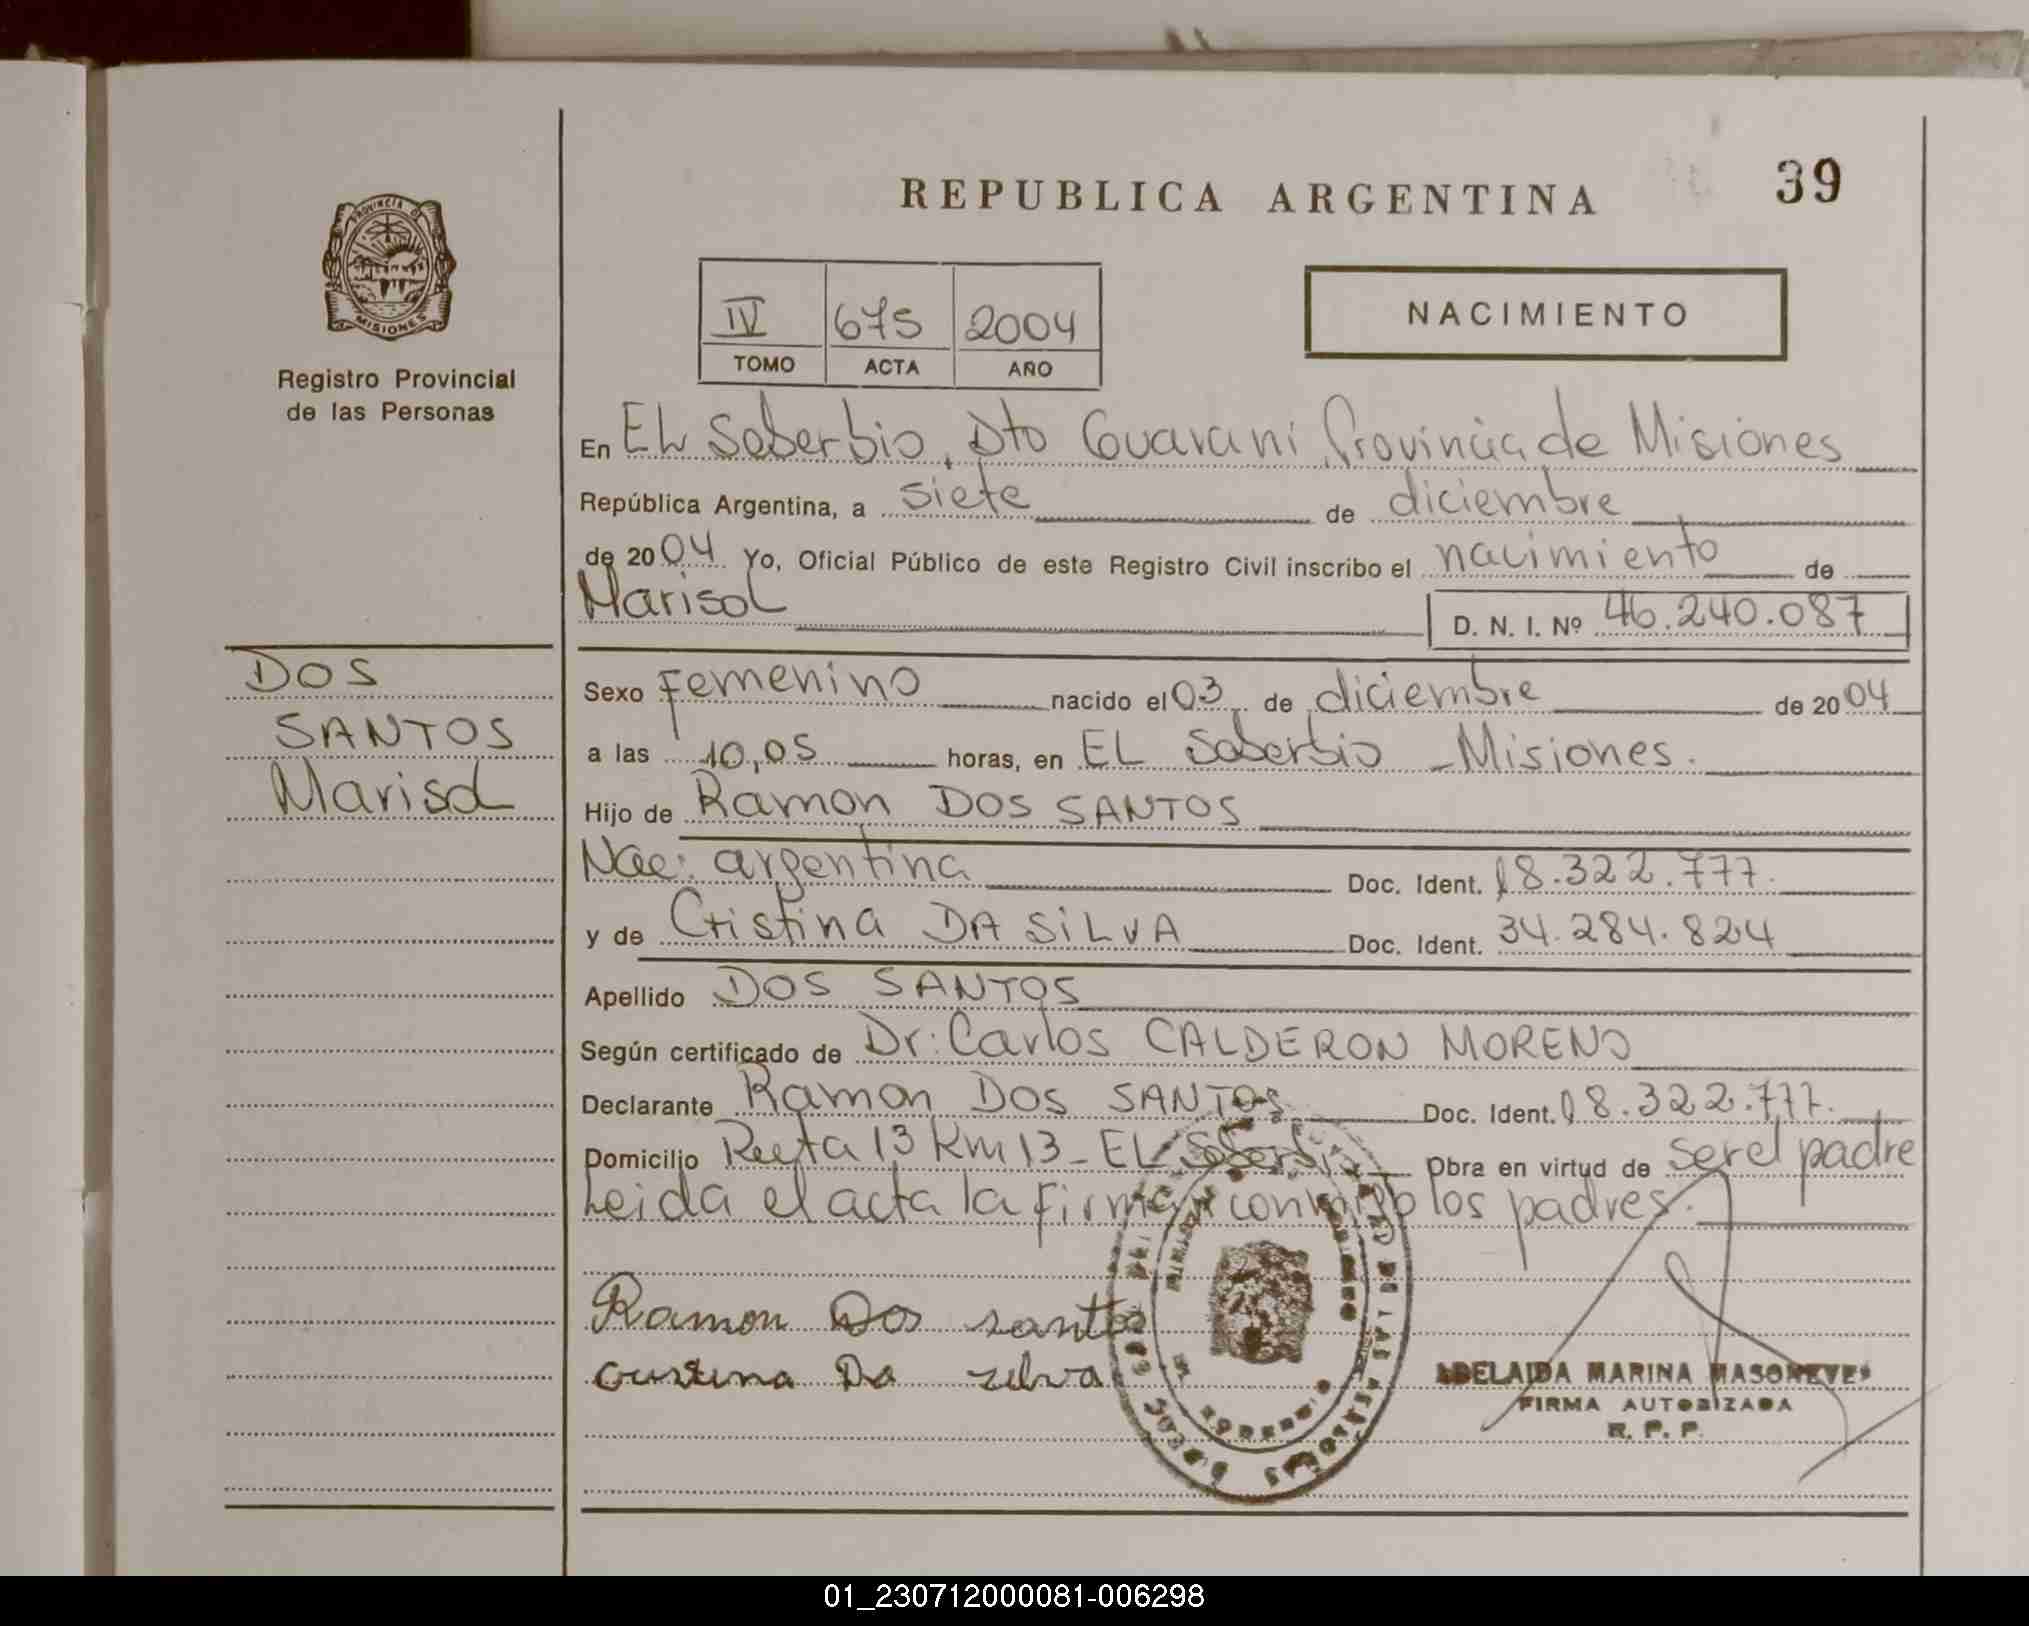 REPUBLICA ARGENTINA
39
PROVINCIA D
MISIONES
Registro Provincial
de las Personas
IV 675 2004
TOMO ACTA AÑO
NACIMIENTO
En EL Soberbio, Dto Guarani Provincia de Misiones
República Argentina, a siete de diciembre
de 2004 Yo, Oficial Público de este Registro Civil inscribo el nacimiento de
Marisol D. N. I. Nº 46.240.087
DOS
SANTOS
Marisol
Sexo Femenino nacido el 03 de diciembre de 2004
a las 10,05 horas, en EL Soberbio - Misiones.
Hijo de Ramon DOS SANTOS
Nac: argentina Doc. Ident. 18.322.777.
y de Cristina DA SILVA Doc. Ident. 34.284.824
Apellido DOS SANTOS
Según certificado de Dr: Carlos CALDERON MORENO
Declarante Ramon DOS SANTOS Doc. Ident. 18.322.777.
Domicilio Ruta 13 Km 13 - EL Soberbio Obra en virtud de ser el padre
Leida el acta la firman conmigo los padres.
Ramon Dos santos
cristina Da silva
ADELAIDA MARINA
FIRMA AUTORIZADA
R. P. P.
DE LAS PERSONAS
01_230712000081-006298